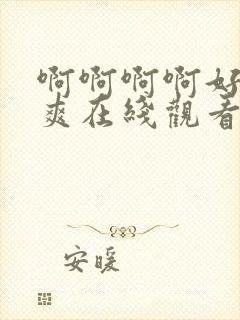 啊啊啊啊好
爽在綫觀看
安暖